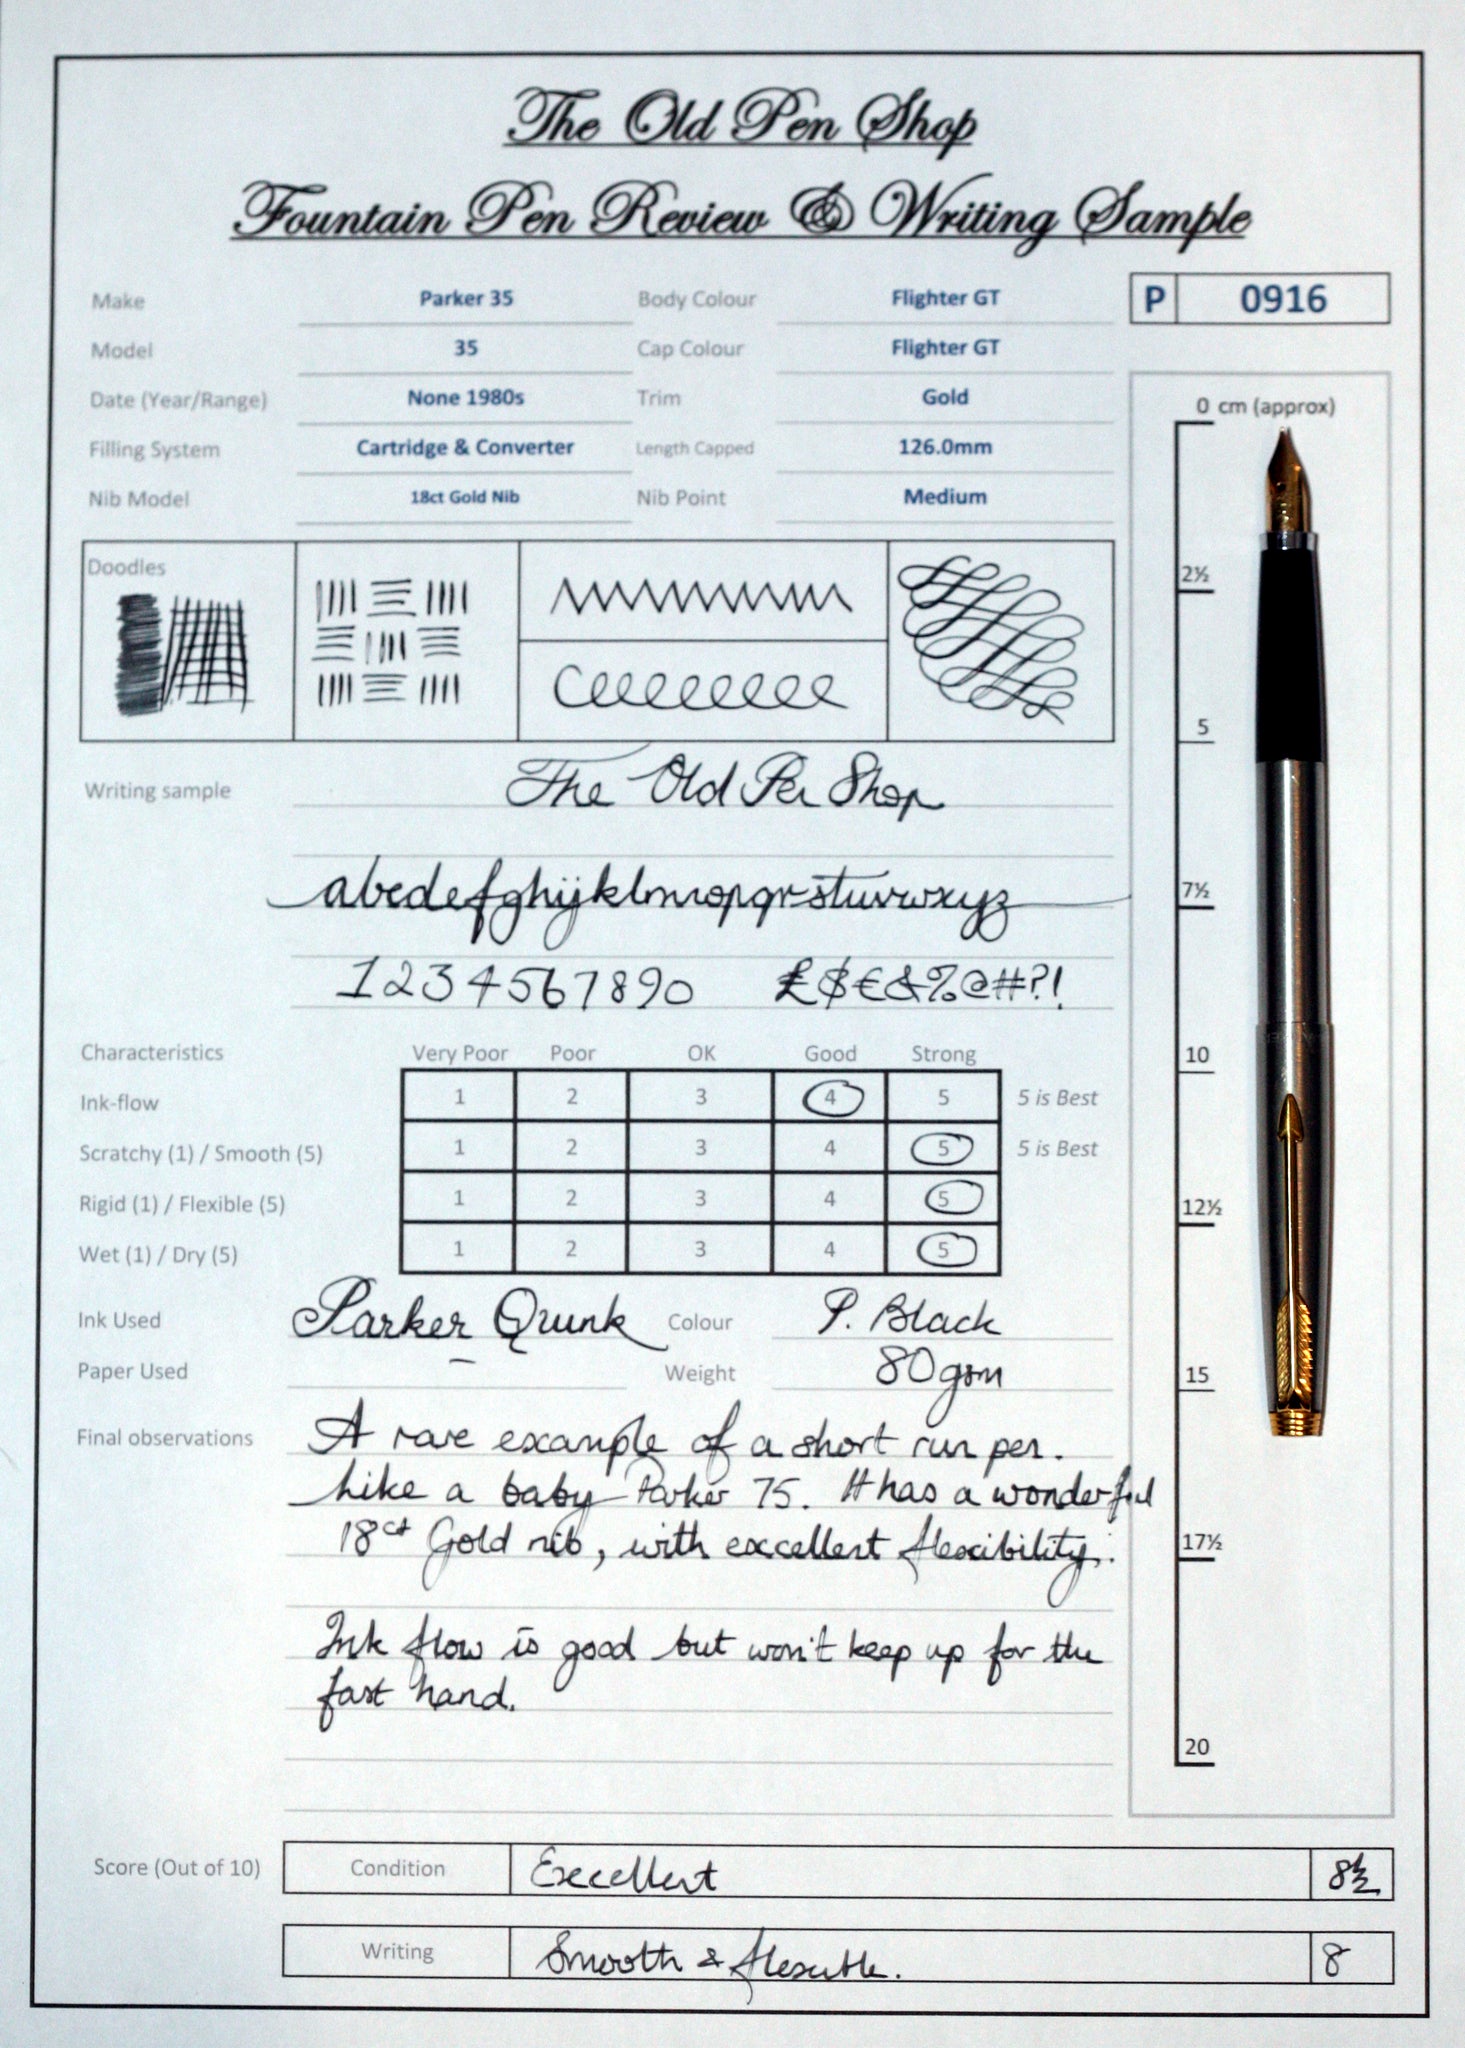 The Old Pen Shop
Fountain Pen Review & Writing Sample
Make Parker 35 Body Colour Flighter GT P 0916
Model 35 Cap Colour Flighter GT
Date (Year/Range) None 1980s Trim Gold
Filling System Cartridge & Converter Length Capped 126.0mm
Nib Model 18ct Gold Nib Nib Point Medium
0 cm (approx)
2½
5
7½
10
12½
15
17½
20
Doodles
Writing sample The Old Pen Shop
abcdefghijklmnopqrstuvwxyz
1234567890 £$€&%@#?!
Characteristics Very Poor Poor OK Good Strong
Ink-flow 1 2 3 4 5 5 is Best
Scratchy (1) / Smooth (5) 1 2 3 4 5 5 is Best
Rigid (1) / Flexible (5) 1 2 3 4 5
Wet (1) / Dry (5) 1 2 3 4 5
Ink Used Parker Qunk Colour P. Black
Paper Used Weight 80gsm
Final observations A rare example of a short run pen.
Like a baby Parker 75. It has a wonderful
18ct Gold nib, with excellent flexibility.
Ink flow is good but won't keep up for the
fast hand.
Score (Out of 10) Condition Excellent 8½
Writing Smooth & flexible. 8